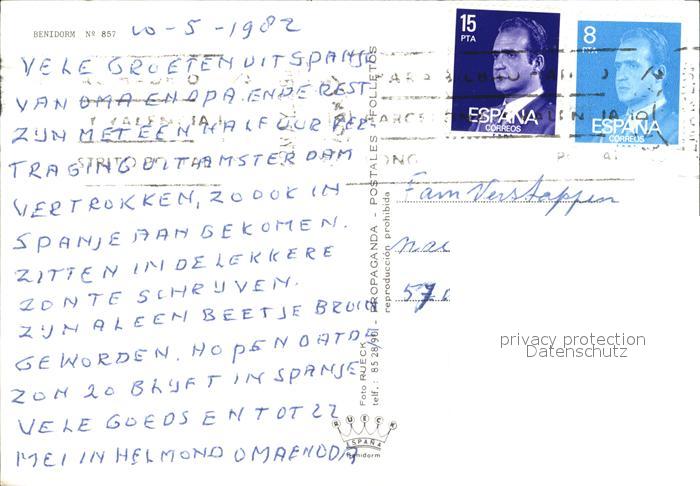 BENIDORM Nº 857
10-5-1982
VELE GROETEN UIT SPANJE
VAN OMA EN OPA EN DE REST
ZIJN MET EEN HALF UUR VER
TRAGING UIT AMSTERDAM
VERTROKKEN, ZO OOK IN
SPANJE AANGEKOMEN.
ZITTEN IN DE LEKKERE
ZON TE SCHRIJVEN.
ZIJN AL EEN BEETJE BRUIN
GEWORDEN. HOPEN DAT DE
ZON ZO BLIJFT IN SPANJE
VELE GOEDS EN TOT 22
MEI IN HELMOND OMA EN OPA
15
PTA
ESPAÑA
CORREOS
8
PTA
ESPAÑA
CORREOS
Fam Verstappen
57
Foto RUECK - PROPAGANDA - POSTALES - FOLLETOS
telf.: 85 28/90
reproducción prohibida
RUECK
ESPAÑA
Benidorm
privacy protection
Datenschutz